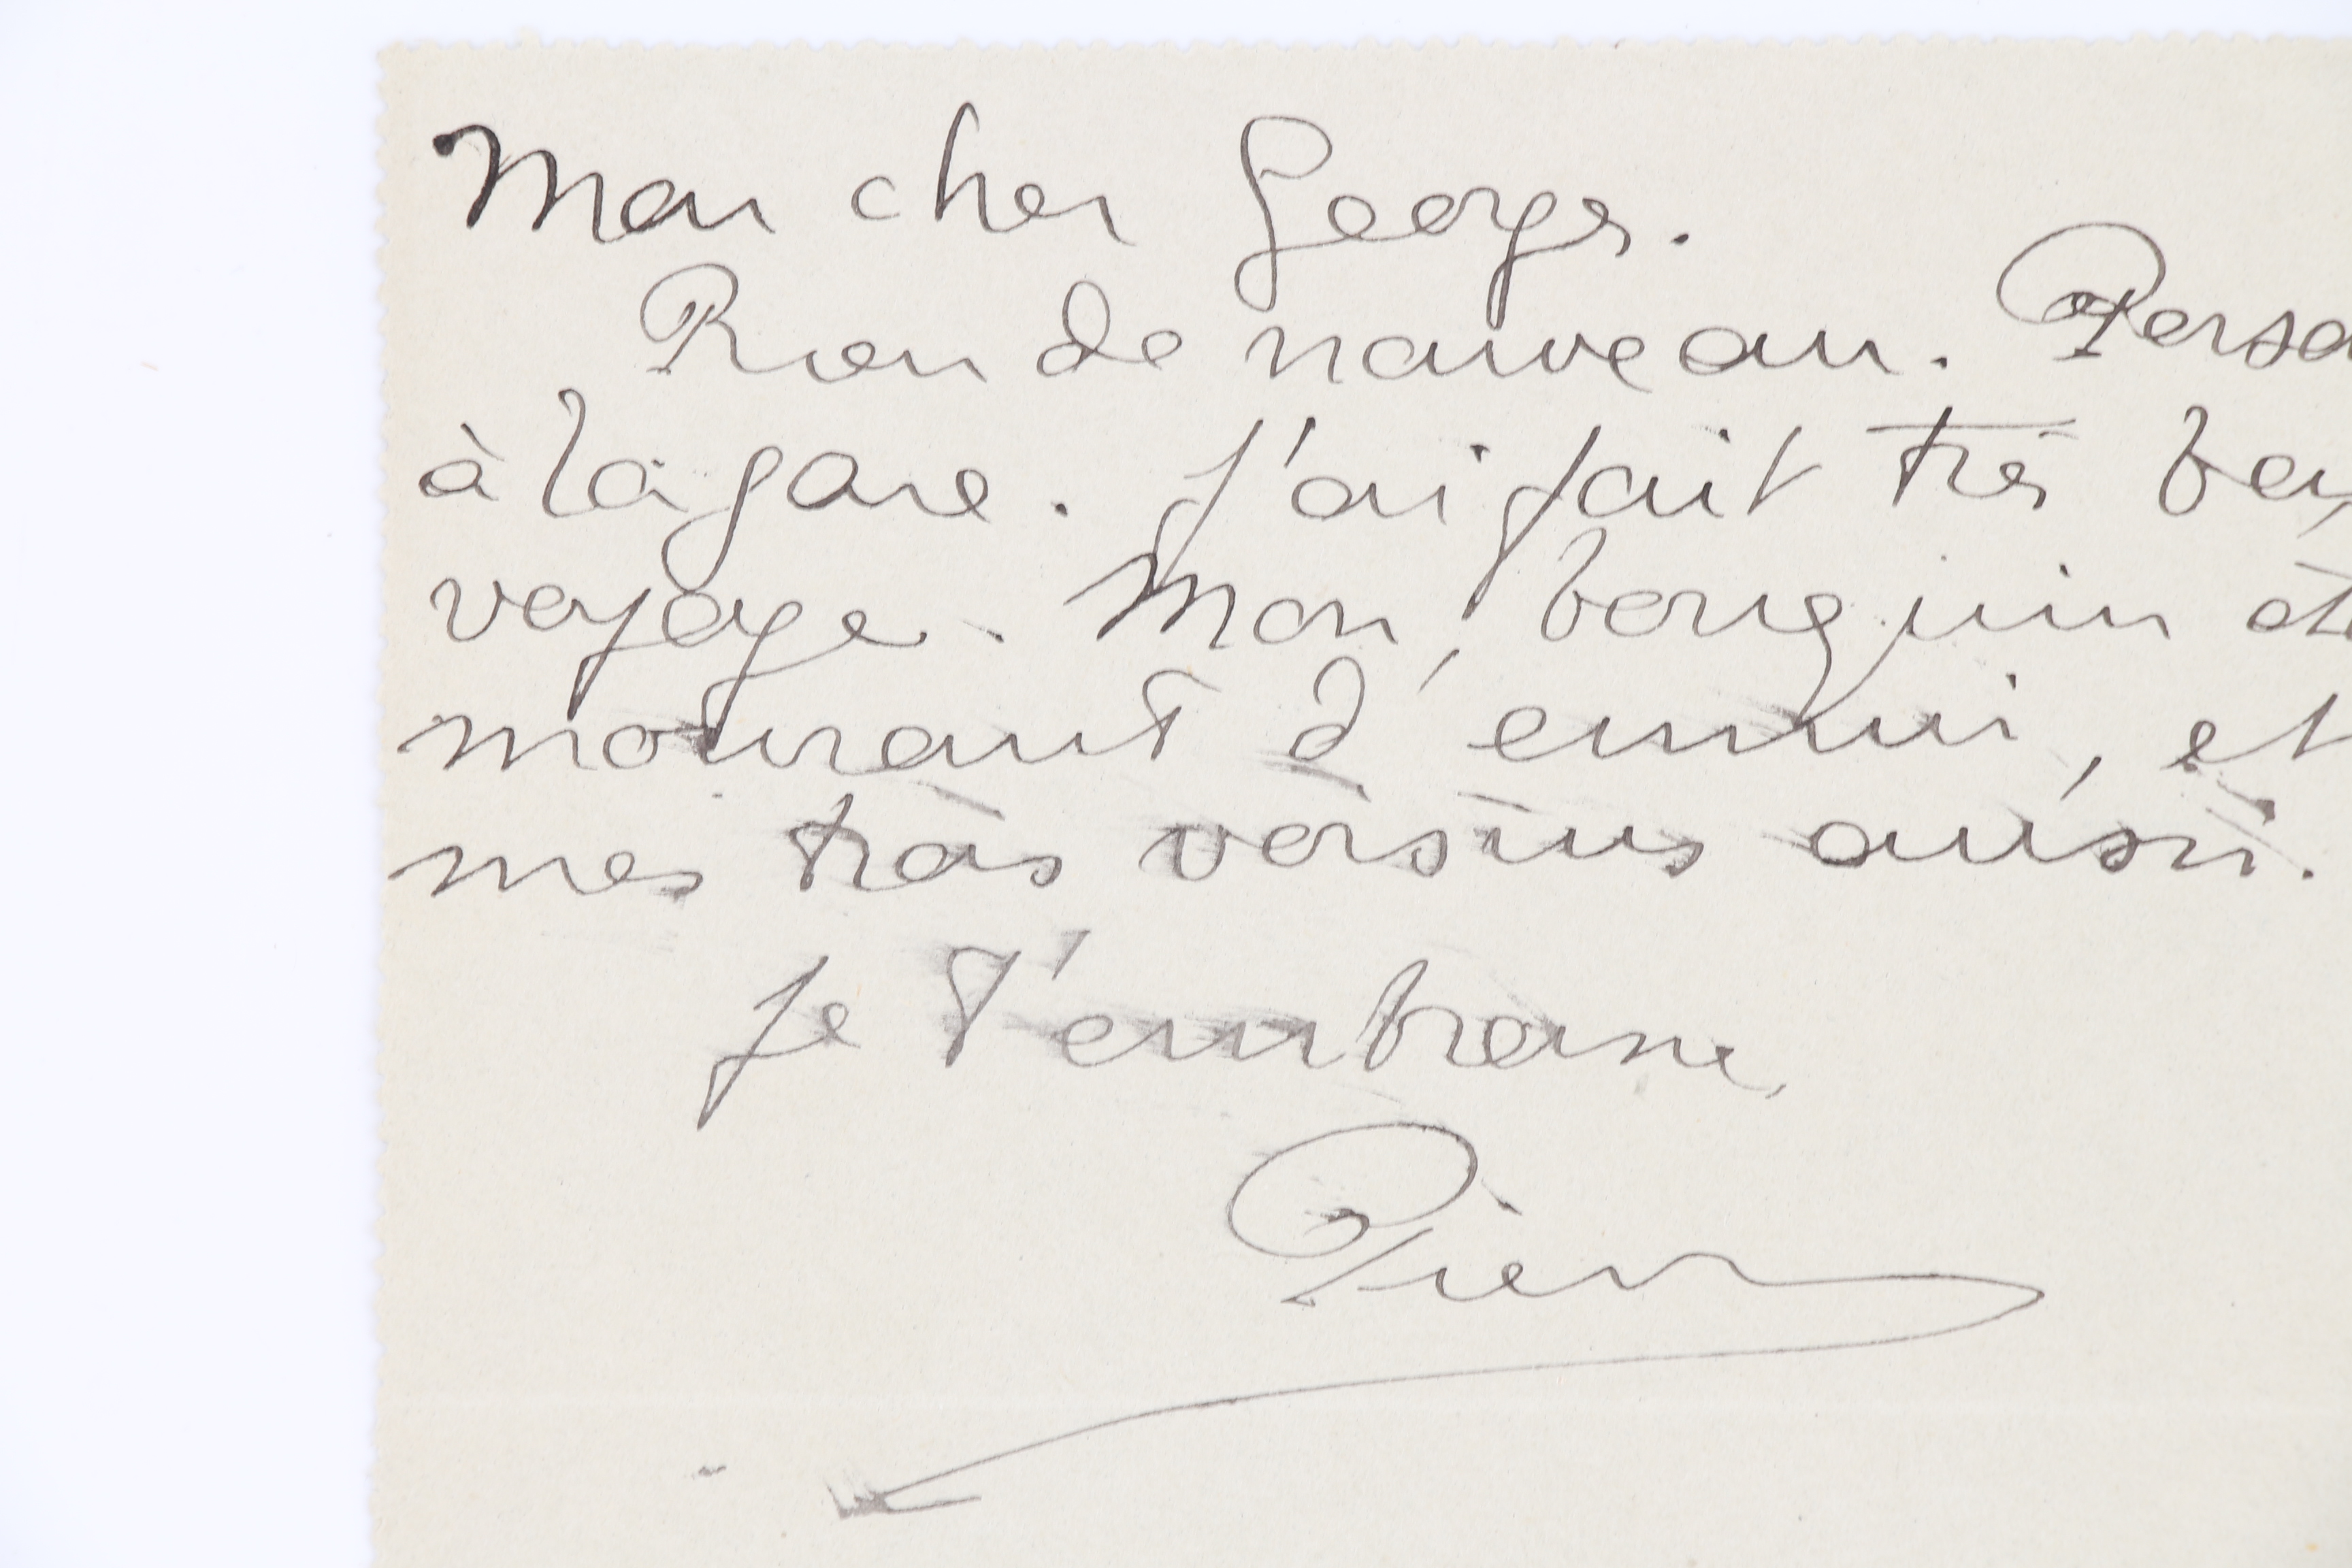 Mon cher Georges.
Rien de nouveau. Perso
à la gare. J'ai fait très beau
voyage. Mon bouquin ét
mourant d'ennui, et
mes trois voisins aussi.
Je t'embrasse,
Pierre